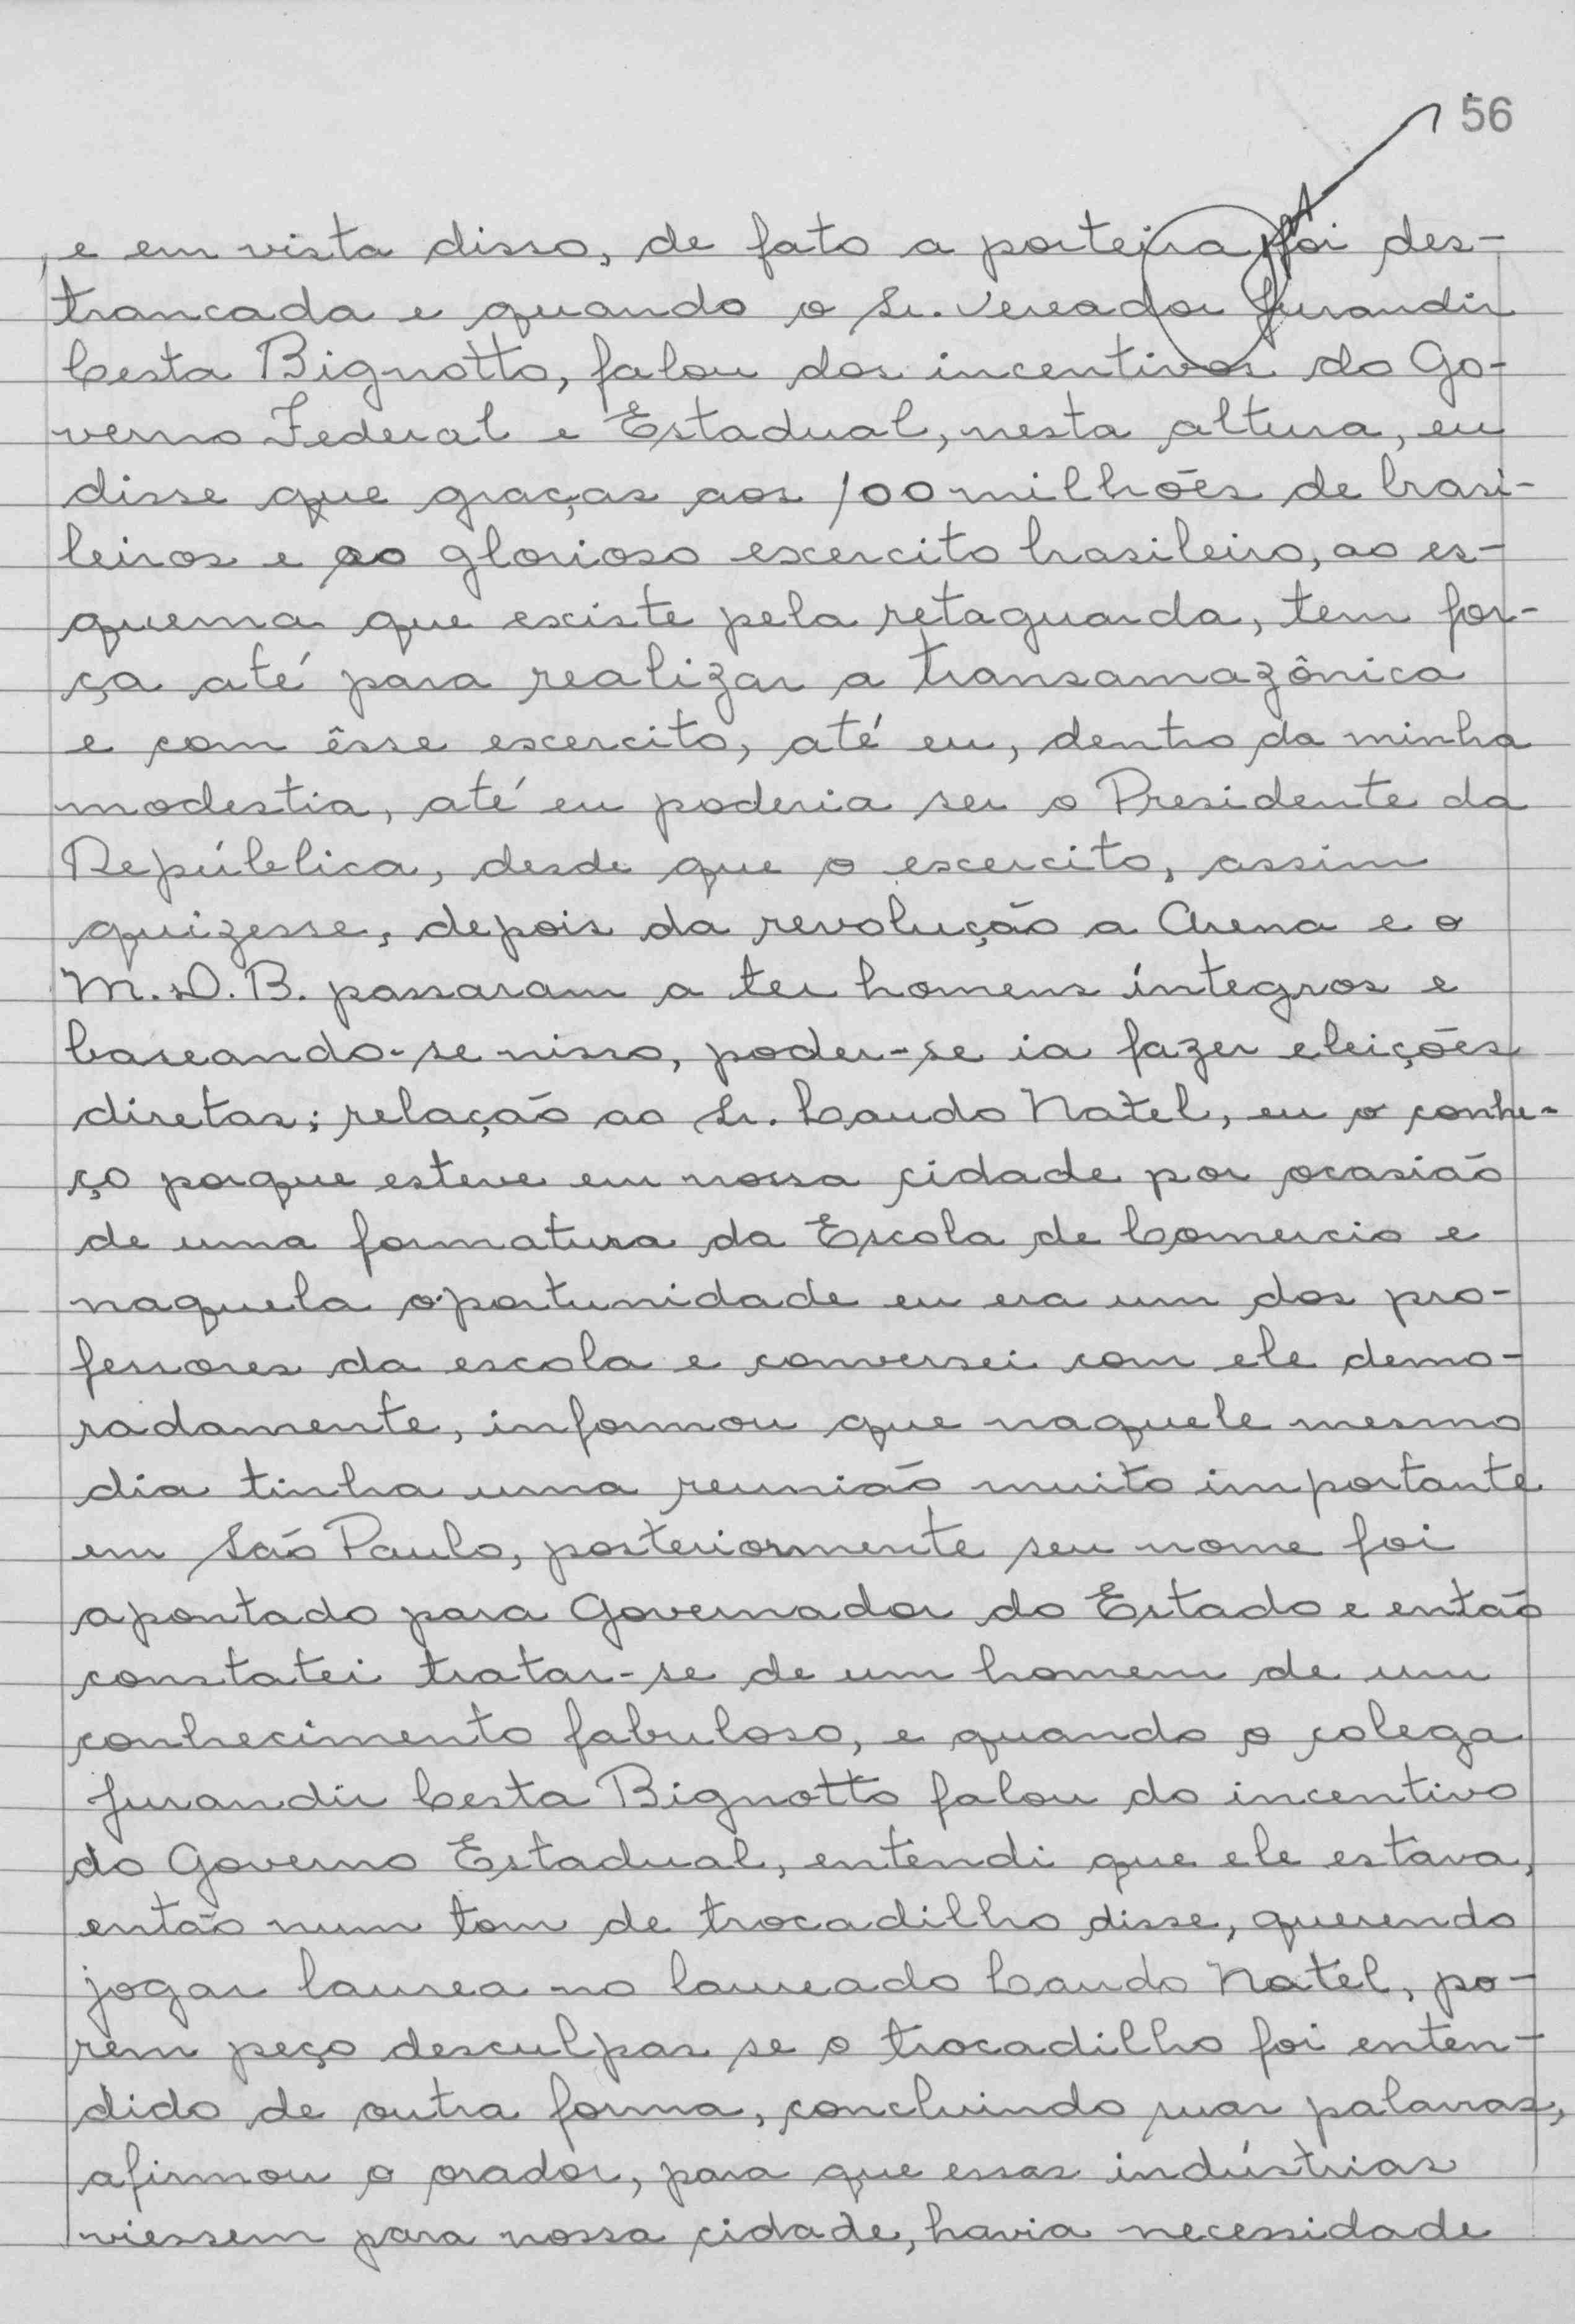 56
e em vista disso, de fato a porteira foi des-
trancada e quando o Sr. Vereador Jurandir
Cesta Bignotto, falou dos incentivos do Go-
verno Federal e Estadual, nesta altura, eu
disse que graças aos 100 milhões de brasi-
leiros e ao glorioso excercito brasileiro, ao es-
quema que existe pela retaguarda, tem for-
ça até para realizar a transamazônica
e com êsse excercito, até eu, dentro da minha
modestia, até eu poderia ser o Presidente da
República, desde que o excercito, assim
quizesse, depois da revolução a Arena e o
M.D.B. passaram a ter homens íntegros e
baseando-se nisso, poder-se ia fazer eleições
diretas; relação ao Sr. Laudo Natel, eu o conhe-
ço porque esteve em nossa cidade por ocasião
de uma formatura da Escola de Comercio e
naquela oportunidade eu era um dos pro-
fessores da escola e conversei com ele demo-
radamente, informou que naquele mesmo
dia tinha uma reunião muito importante
em São Paulo, posteriormente seu nome foi
apontado para Governador do Estado e então
constatei tratar-se de um homem de um
conhecimento fabuloso, e quando o colega
Jurandir Cesta Bignotto falou do incentivo
do Governo Estadual, entendi que ele estava,
então num tom de trocadilho disse, querendo
jogar laurea no laureado Laudo Natel, po-
rem peço desculpas se o trocadilho foi enten-
dido de outra forma, concluindo suas palavras,
afirmou o orador, para que essas indústrias
viessem para nossa cidade, havia necessidade